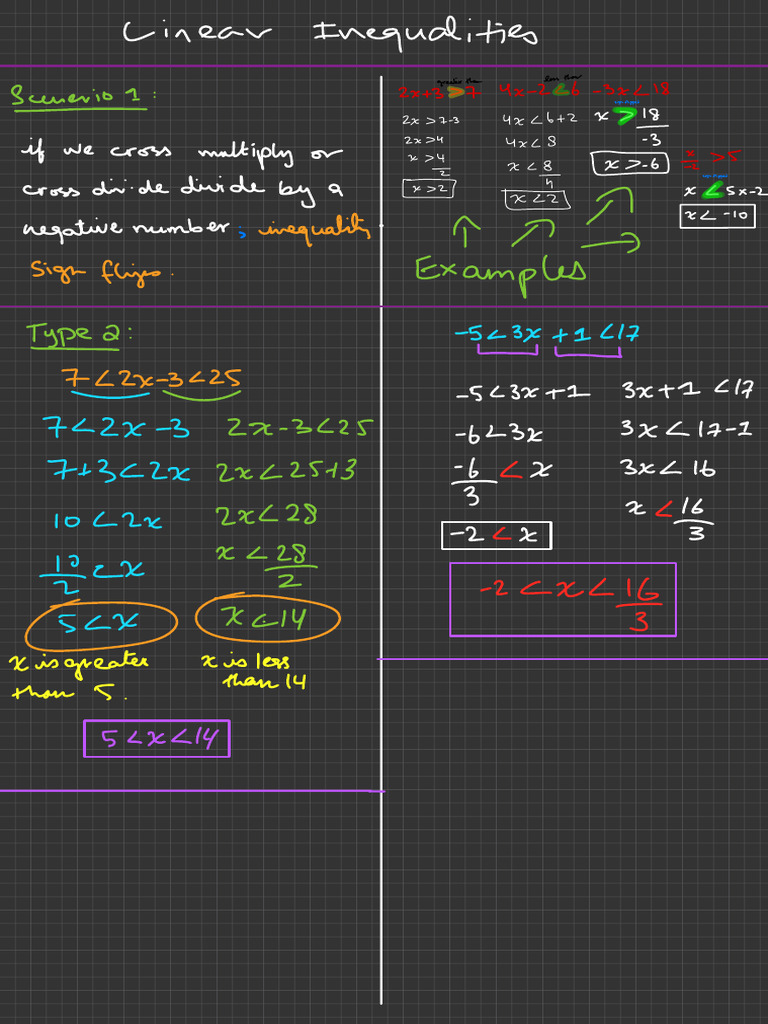 Linear Inequalities
Scenerio 1:
if we cross multiply or
cross divide divide by a
negative number; inequality
sign flips.
greater than
2x+3 > 7
2x > 7-3
2x > 4
x > 4/2
x > 2
less than
4x-2 < 6
4x < 6+2
4x < 8
x < 8/4
x < 2
-3x < 18
x > 18/-3
x > -6
x/-2 > 5
x < 5x-2
x < -10
Examples
Type 2:
7 < 2x-3 < 25
7 < 2x -3
7+3 < 2x
10 < 2x
10/2 < x
5 < x
x is greater
than 5.
2x-3 < 25
2x < 25+3
2x < 28
x < 28/2
x < 14
x is less
than 14
5 < x < 14
-5 < 3x +1 < 17
-5 < 3x+1
-6 < 3x
-6/3 < x
-2 < x
3x+1 < 17
3x < 17-1
3x < 16
x < 16/3
-2 < x < 16/3